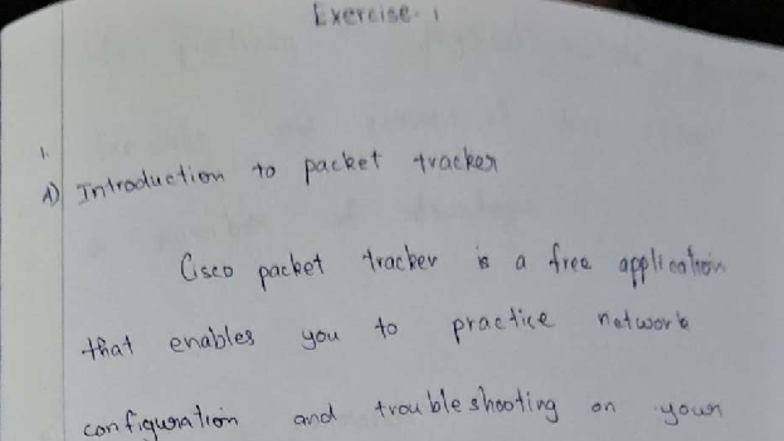 Exercise-1
1.
A) Introduction to packet tracker
Cisco packet tracker is a free application
that enables you to practice network
configuration and troubleshooting on your